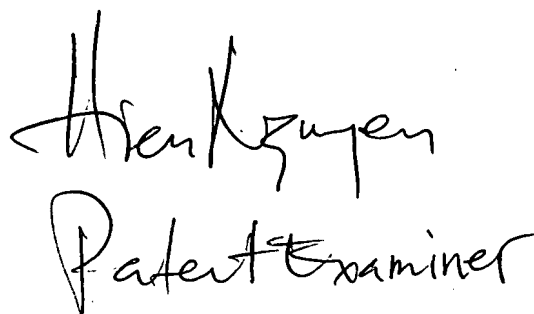 Hien Nguyen
Patent Examiner